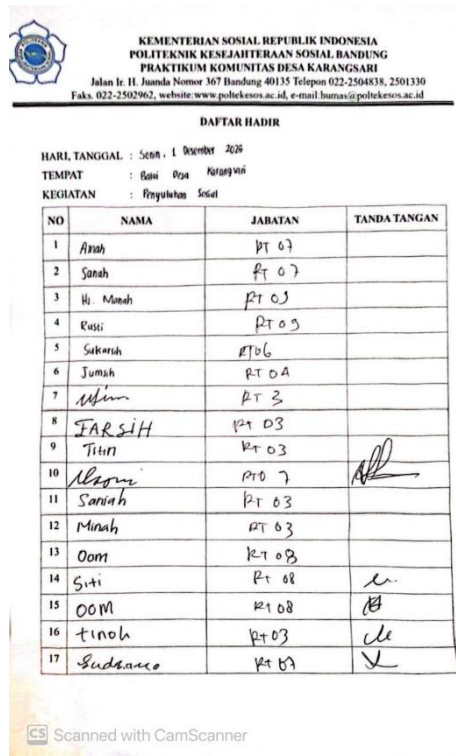 KEMENTERIAN SOSIAL REPUBLIK INDONESIA
POLITEKNIK KESEJAHTERAAN SOSIAL BANDUNG
PRAKTIKUM KOMUNITAS DESA KARANGSARI
Jalan Ir. H. Juanda Nomor 367 Bandung 40135 Telepon 022-2504838, 2501330
Faks. 022-2502962, website:www.poltekesos.ac.id, e-mail:humas@poltekesos.ac.id
DAFTAR HADIR
HARI, TANGGAL : Senin, 1 Desember
TEMPAT : Balai Desa Karangsari
KEGIATAN : Penyuluhan Sosial
NO NAMA JABATAN TANDA TANGAN
1 Anah RT 07
2 Sanah RT 07
3 Hj. Manah RT
4 Rusti RT 09
5 RT06
6 Jumsih RT 04
7 RT 3
8 TARSIH RT 03
9 Titin RT 03
10 RT0 7
11 Saniah RT 03
12 Minah RT 03
13 Oom RT 08
14 Siti Rt 08
15 OOM Rt 08
16 tinoh Rt 03
17 Rt 07
CS Scanned with CamScanner